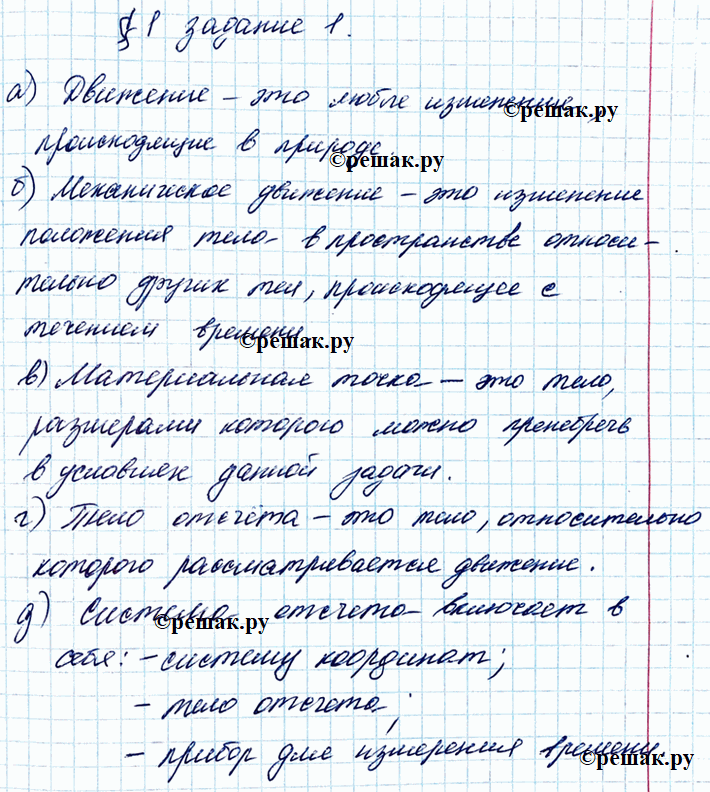 § 1 задание 1.
а) Движение – это любые изменение,
©решак.ру
происходящие в природе.
©решак.ру
б) Механическое движение – это изменение
положения тела в пространстве относи-
тельно других тел, происходящее с
течением времени
©решак.ру
в) Материальная точка – это тело,
размерами которого можно пренебречь
в условиях данной задачи.
г) Тело отсчёта – это тело, относительно
которого рассматривается движение.
д) Система отсчета включает в
©решак.ру
себя: – систему координат;
– тело отсчета;
– прибор для измерения времени.
©решак.ру